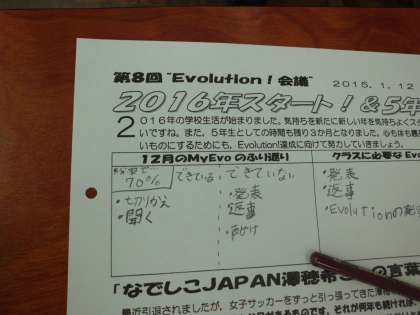 第8回 "Evolution！会議"
2015.1.12
2016年スタート！&5年
2016年の学校生活が始まりました。気持ちを新たに新しい年を気持ちよくス
いですね。また、5年生としての時間も残り3か月となりました。心も体も最
いものにするためにも、Evolution!達成に向けて努力していきましょう。
12月のMyEvoのふり返り
クラスに必要なEv
70%
できている
できていない
・切りかえ
・聞く
・発表
返事
・発表
返事
・Evolutionの
「なでしこJAPAN澤穂希
の言葉
引退されましたが、女子サッカーをずっと引っ張ってきた